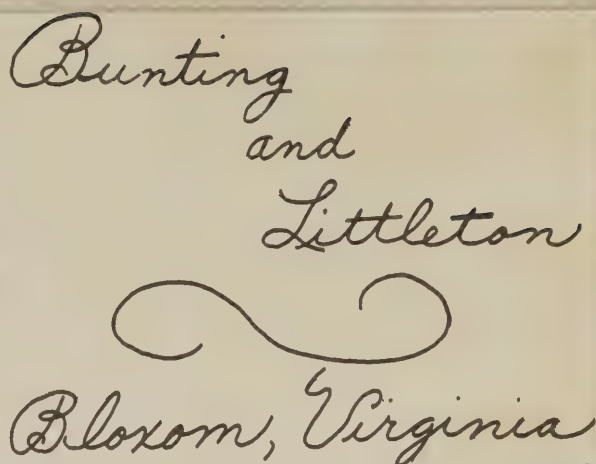 Bunting
and
Littleton
Bloxom, Virginia